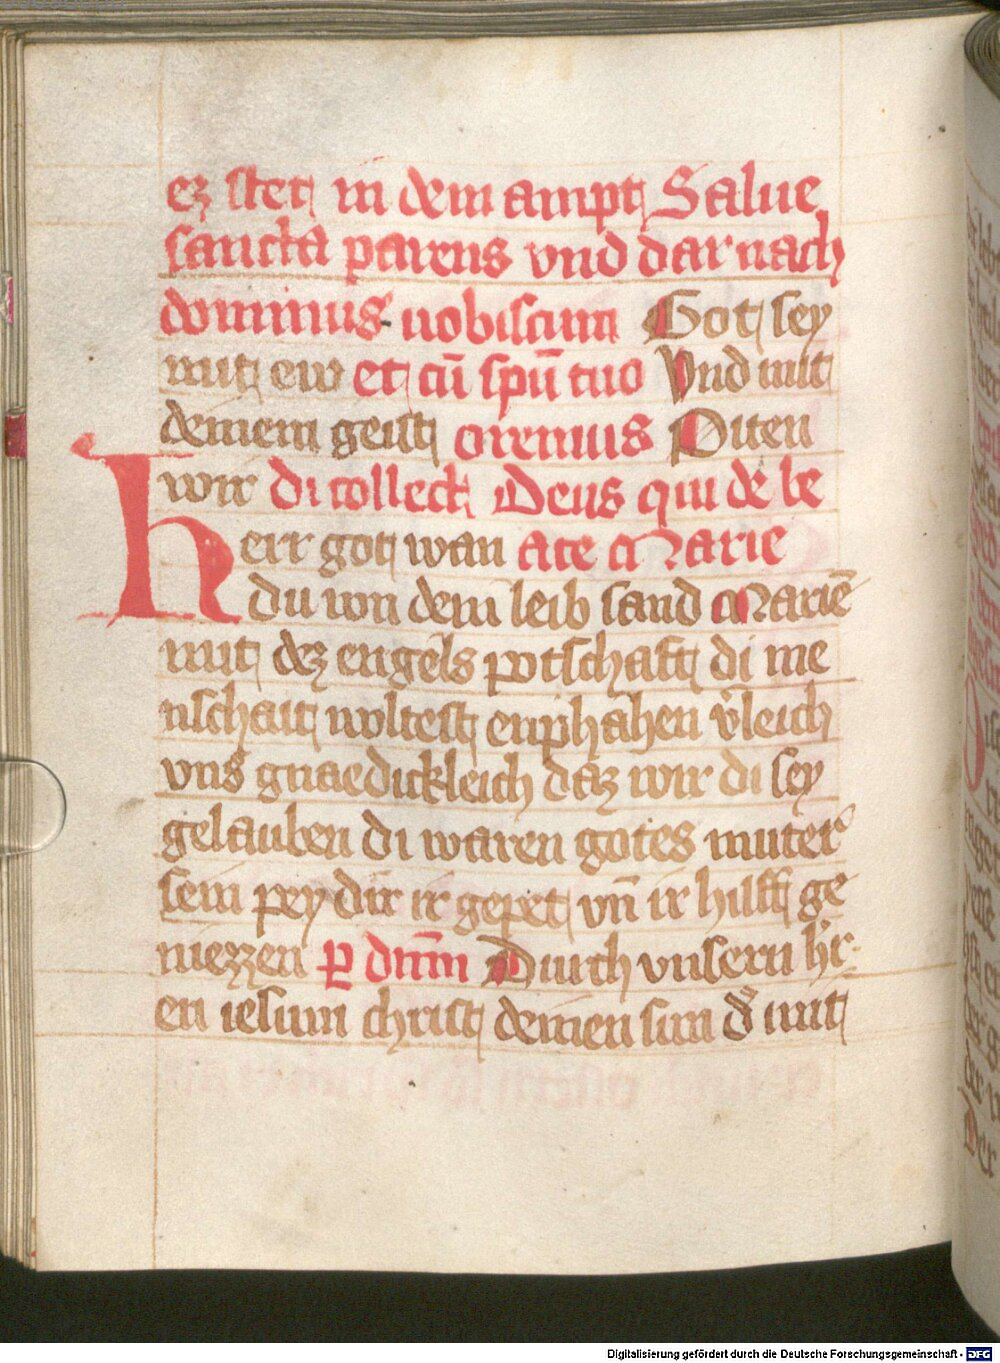 ez stet in dem ampt Salue
sancta parens vnd dar nach
dominus nobiscum Got sey
mit ew et cū spū tuo Vnd mit
deinem geist oremus Piten
wir di colleck Deus qui de be
herr got wan ate Marie
du von dem leib sand Mariē
mit dez engels potschaft di me
nschait woltest enphahen v̄leich
vns gnaedickleich daz wir di sey
gelauben di waren gotes muter
sein pey dir ir gepet vn̄ ir hilff ge
niezzen ꝑ dn̄m Durch vnsern h̄r
en iesum christ deinen sun d̄ mit
Digitalisierung gefördert durch die Deutsche Forschungsgemeinschaft - DFG